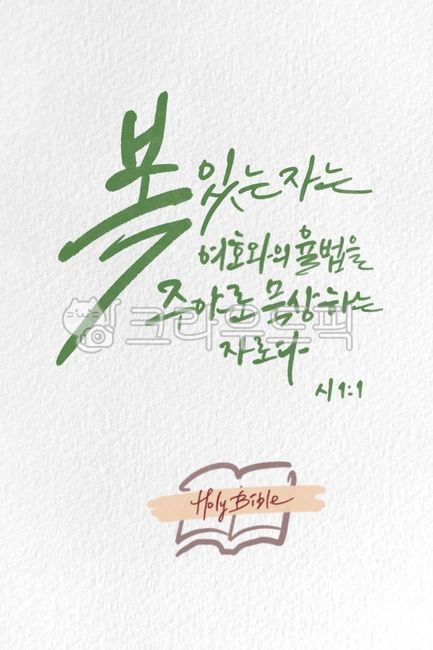 복 있는 자는
여호와의 율법을
주야로 묵상하는
자로다
시 1:1
크라우드픽
Holy Bible